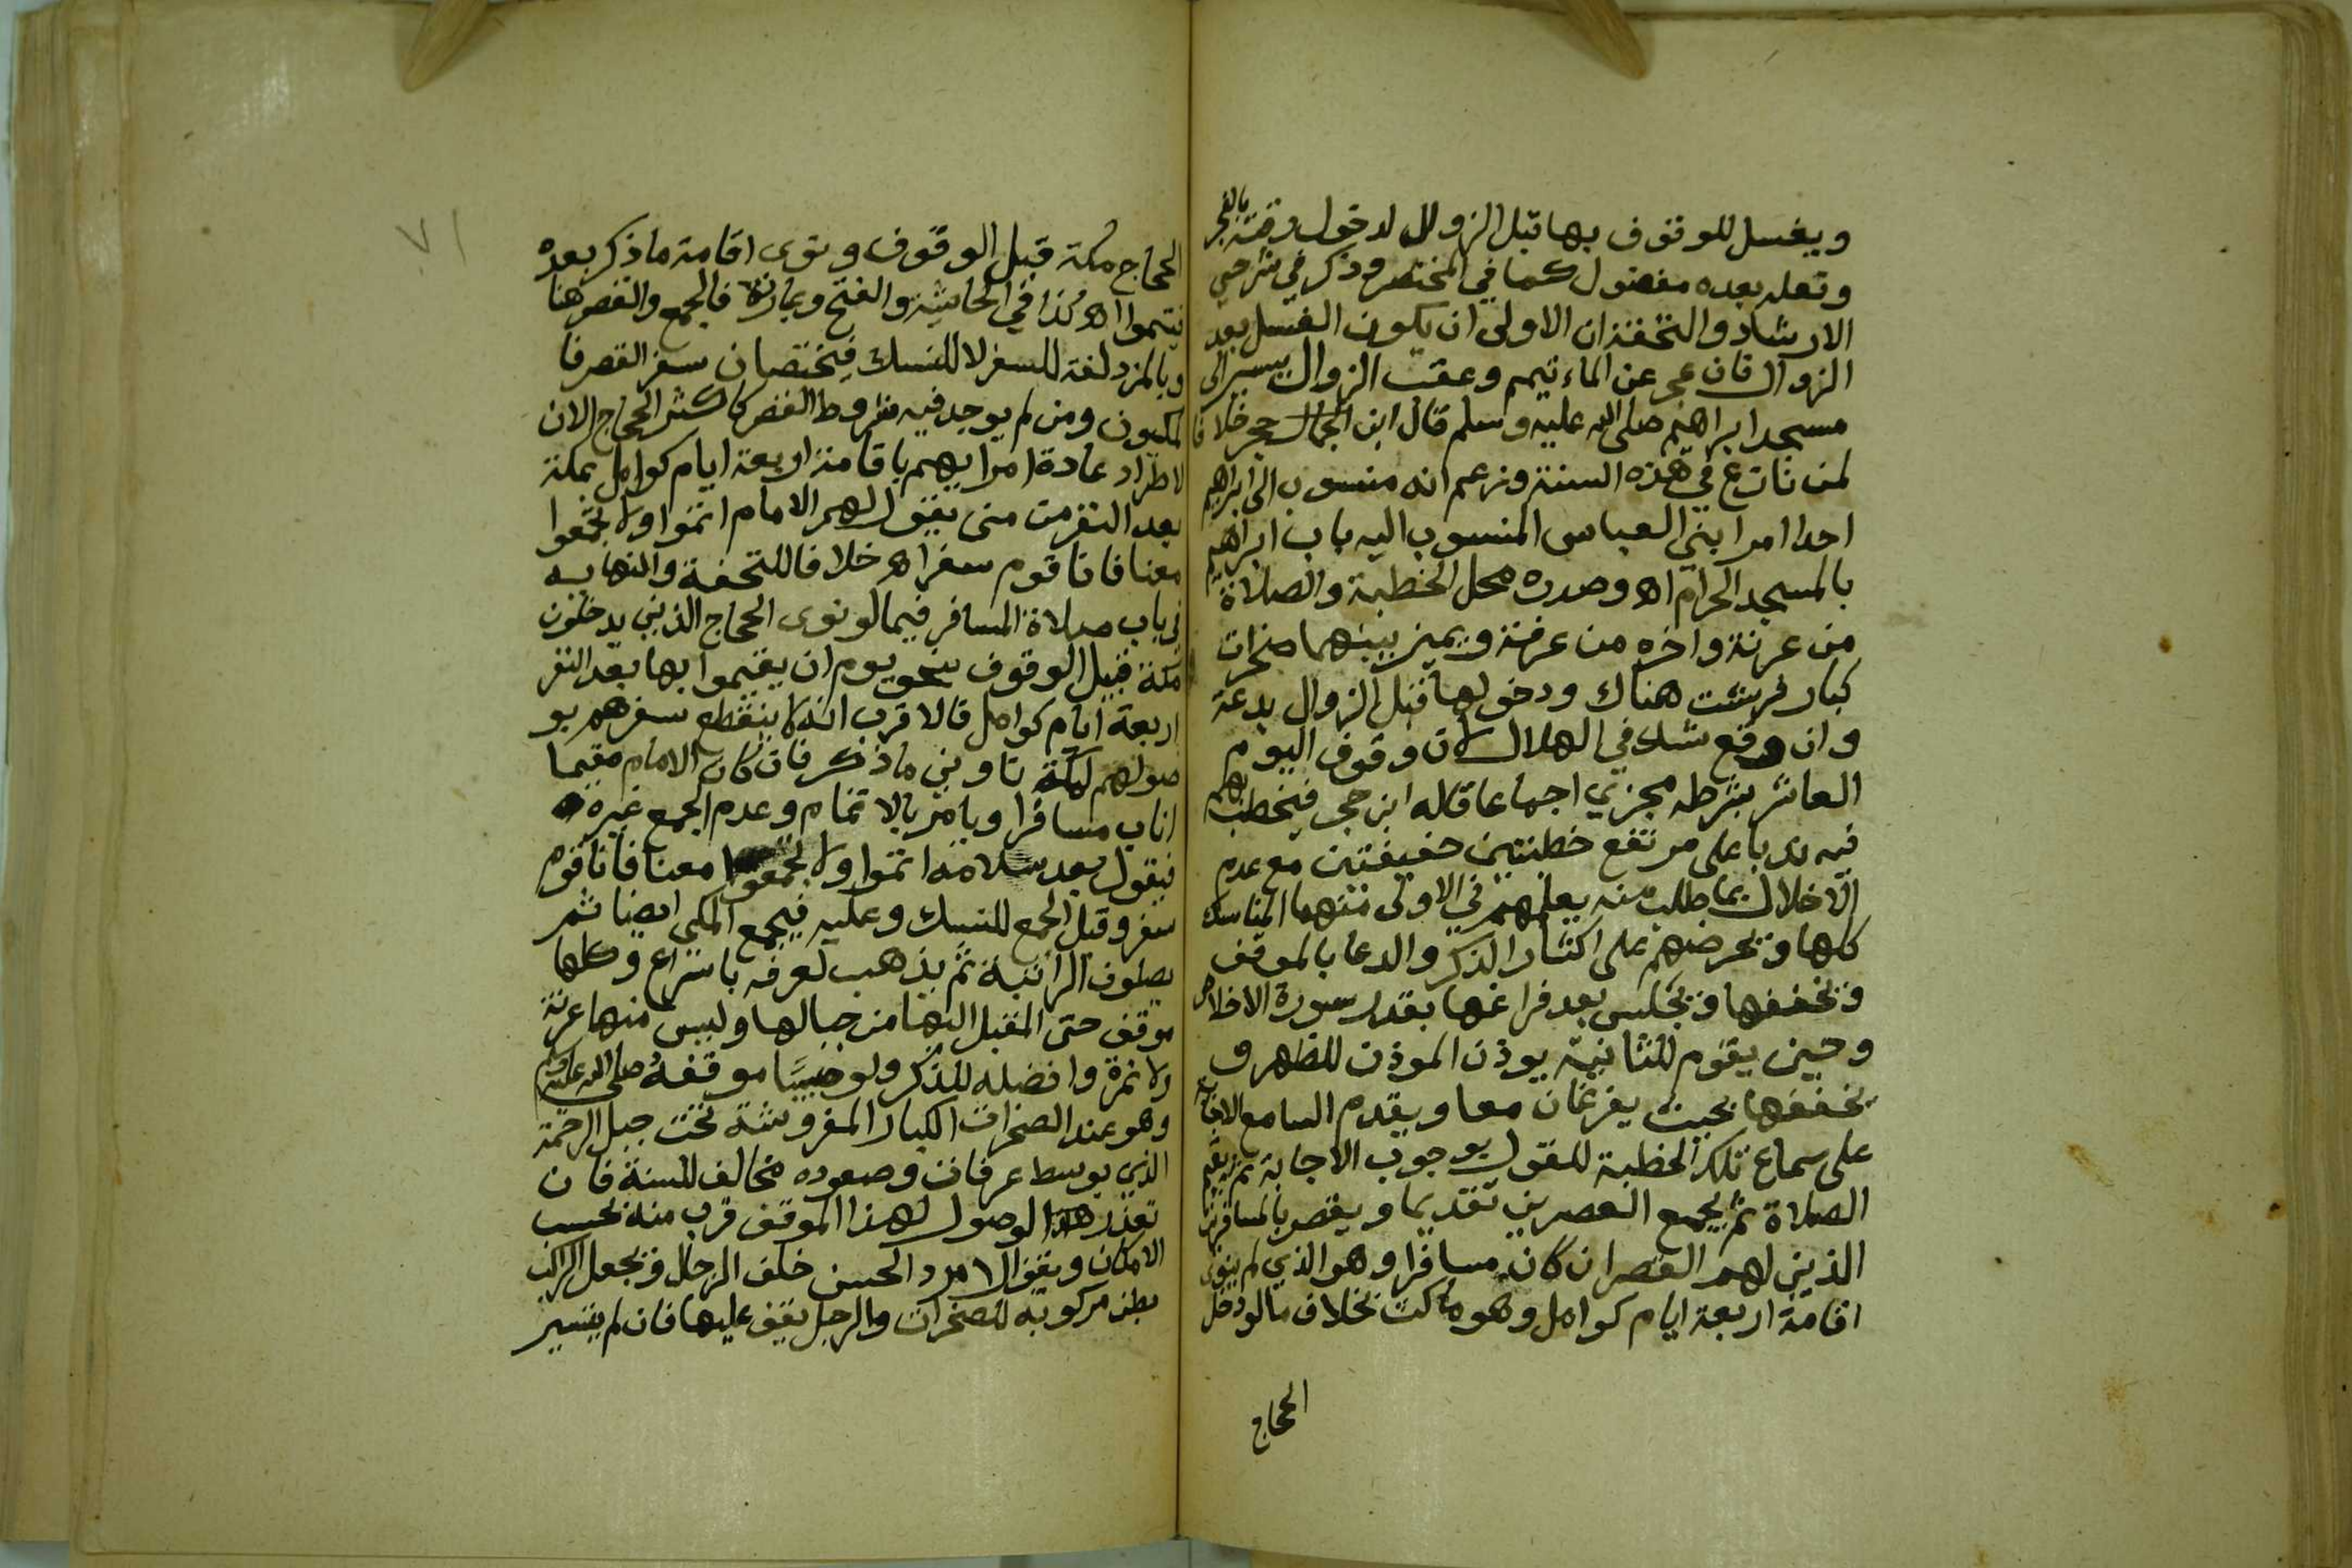 ويغسل للوقوف بها قبل الزوال لدخول وقته بالفجر
وتعله بعده مفضول كما في المختصر وذكر في شرحي
الارشاد والتحفة ان الاولى ان يكون الغسل بعد
الزوال فان عجز عن الماء تيمم وعقب الزوال يسير الى
مسجد ابراهيم صلى الله عليه وسلم قال ابن الجمال حجر خلافا
لمن نازع في هذه السنة وزعم انه منسوب الى ابراهيم
احد امرا بني العباس المنسوب اليه باب ابراهيم
بالمسجد الحرام اه وصدره محل الخطبة والصلاة
من عرنة واخره من عرفة ويميز بينهما صخرات
كبار فرشت هناك ودخولها قبل الزوال بدعة
وان وقع شك في الهلال لان وقوف اليوم
العاشر بشرطه مجزي اجماعا قاله ابن حجر فيخطب بهم
فيه ندبا على مرتفع خطبتين خفيفتين مع عدم
الاخلال بما طلب منه يعلمهم في الاولى منهما المناسك
كلها ويحرضهم على اكثار الذكر والدعا بالموقف
ويخففها ويجلس بعد فراغها بقدر سورة الاخلاص
وحين يقوم للثانية يوذن الموذن للظهر و
يخففها بحيث يفرغان معا ويقدم السامع الاجابة
على سماع تلك الخطبة للقول بوجوب الاجابة ثم يقيم
الصلاة ثم يجمع العصرين تقديما ويقصر بالمسافرين
الذين لهم القصر ان كان مسافرا وهو الذي لم ينوى
اقامة اربعة ايام كوامل وهو ماكث بخلاف ما لو دخل
الحجاج
٧١
الحجاج مكة قبل الوقوف ونوى اقامة ما ذكر بعده
فيتموا اه كذا في الحاشية والفتح وعبارته فالجمع والقصر هنا
وبالمزدلفة للسفر لا للنسك فيختصان سفر القصر فا
لمكيون ومن لم يوجد فيه شروط القصر كاكثر الحجاج الان
لاطراد عادة امرايهم باقامة اربعة ايام كوامل بمكة
بعد النفر من منى يقول لهم الامام اتموا ولا تجمعوا
معنا فانا قوم سفر اه خلافا للتحفة والنهاية
في باب صلاة المسافر فيما لو نوى الحجاج الذين يدخلون
مكة قبيل الوقوف بنحو يوم ان يقيموا بها بعد النفر
اربعة ايام كوامل فالاقرب انه لا ينقطع سفرهم بو
صولهم لمكة ناوين ما ذكر فان كان الامام مقيما
اناب مسافرا ويامر بالاتمام وعدم الجمع غيره
فيقول بعد سلامه اتموا ولا تجمعوا معنا فانا قوم
سفر وقيل الجمع للنسك وعليه فيجمع المكي ايضا ثم
يصلون الراتبة ثم يذهب لعرفه باسراع وكلها
موقف حتى المقبل اليها من جبالها وليس منها عرنة
ولا نمرة وافضله للذكر ولو صبيا موقفه صلى الله عليه وسلم
وهو عند الصخرات الكبار المفروشة تحت جبل الرحمة
الذي بوسط عرفات وصعوده مخالف للسنة فان
تعذر الوصول لهذا الموقف قرب منه بحسب
الامكان ويقف الامرد الحسن خلف الرجال ويجعل الراكب
بطن مركوبه للصخرات والرجل يقف عليها فان لم يتيسر